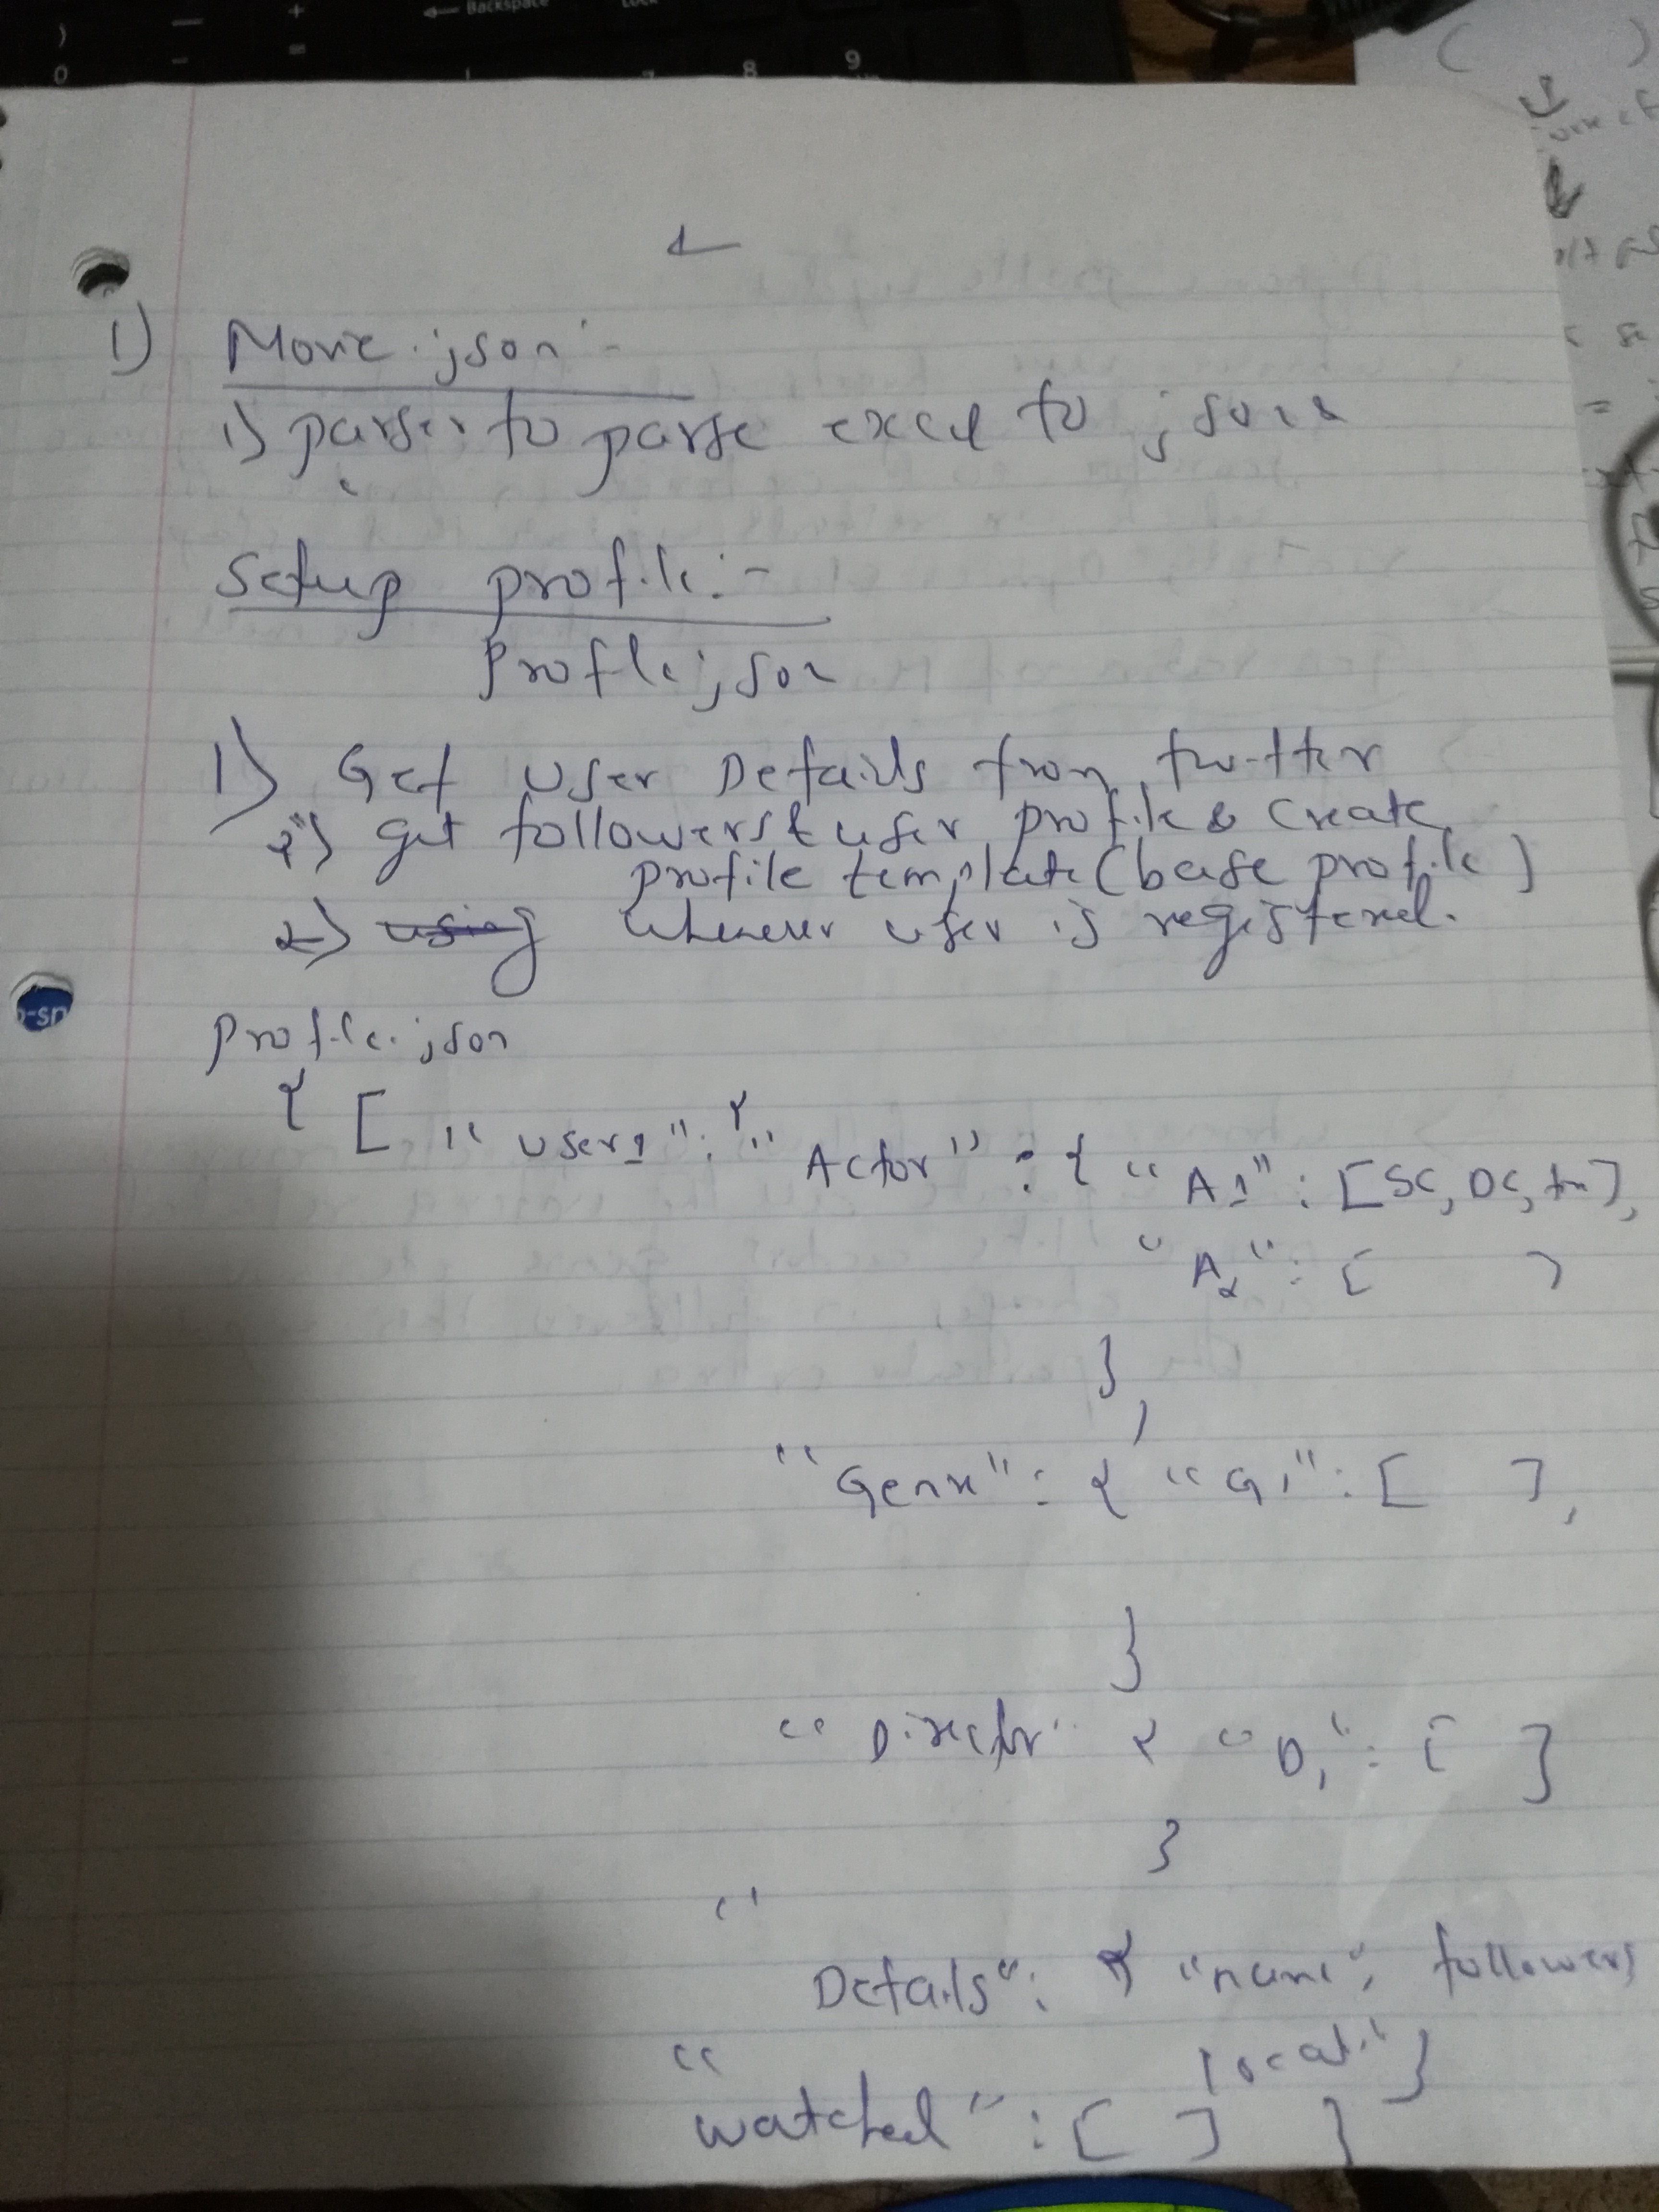 ← Backspace
Lock
) — +
0 - = 7 8 9
1) Movie.json :-
1) parser to parse excel to json
Setup profile :-
Profile.json
1) Get user Details from twitter
2) get followers & user profile & create
profile template (base profile)
2) using whenever user is registered.
-sn
Profile.json
{ [ "user1" : { "Actor" : { "A1" : [SC, DC, tm],
"A2" : [ ]
},
"Genre" : { "G1" : [ ],
}
"Director" { "D1" : [ ]
}
"
Details" : { "name", followers
locat." }
"
watched" : [ ] }